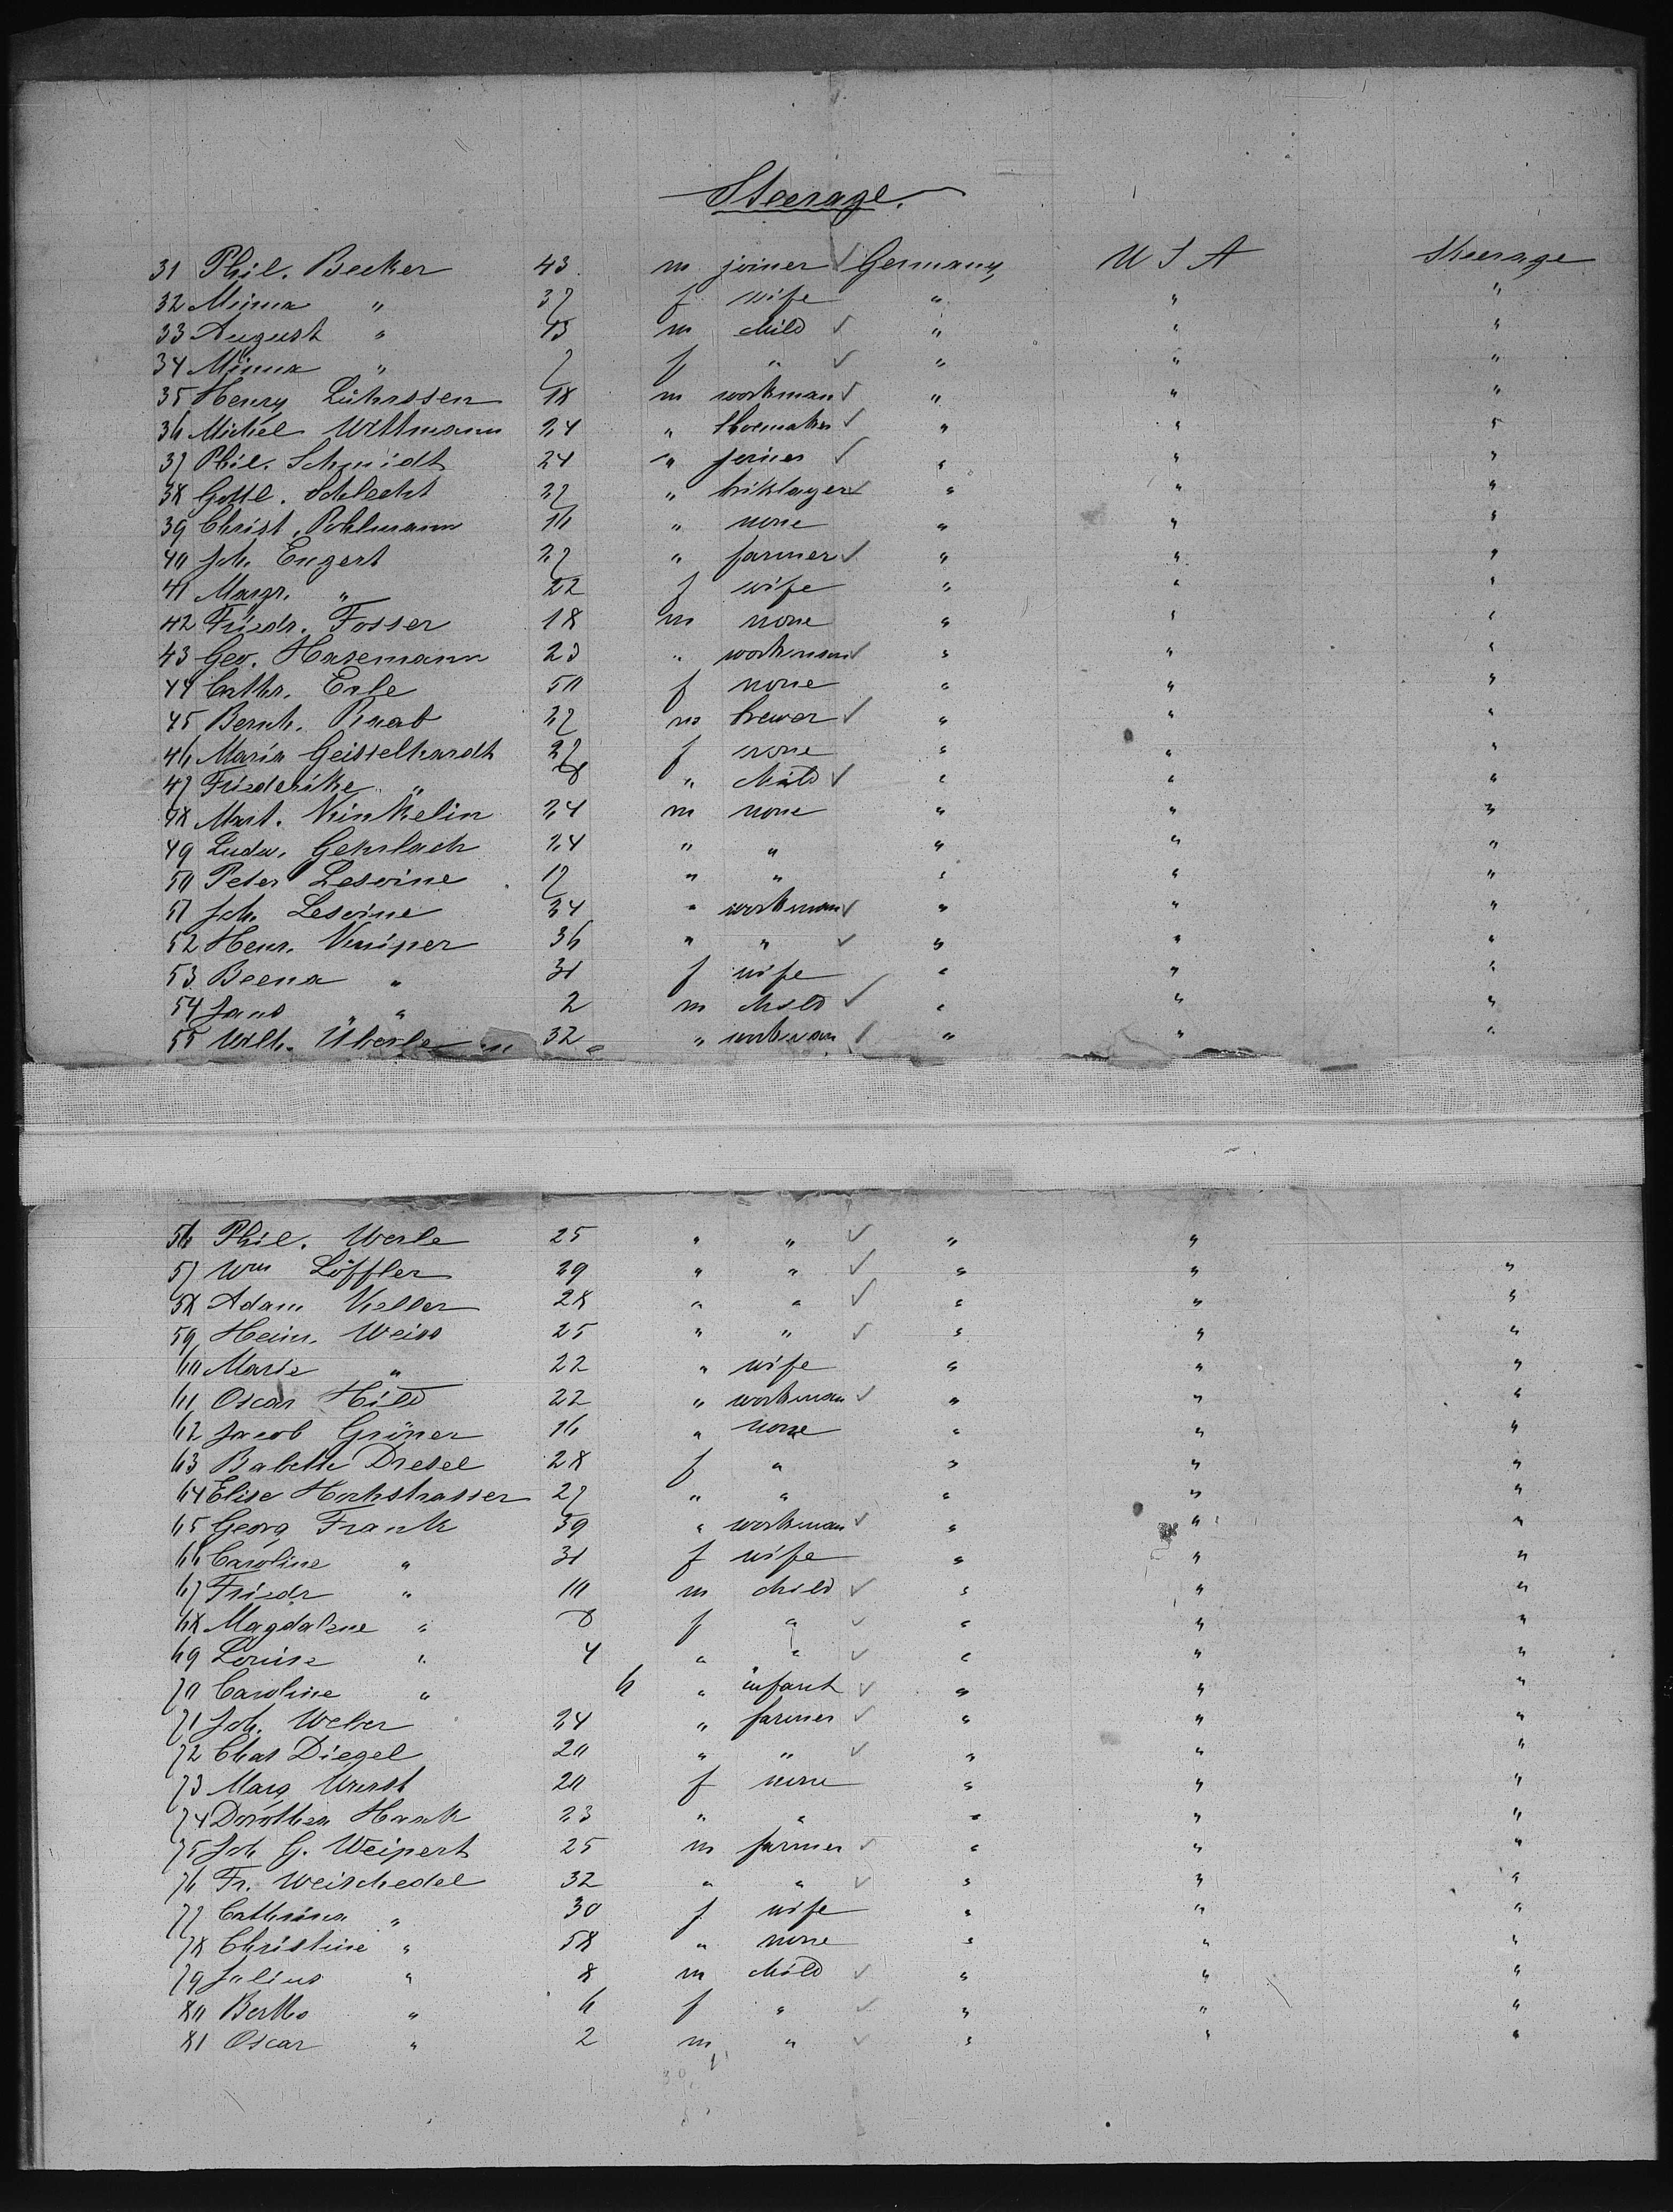 Steerage.
31 Phil. Becker 43 m joiner ✓ Germany U S A Steerage
32 Minna " 37 f wife " " "
33 August " 13 m child ✓ " " "
34 Minna " 7 f " ✓ " " "
35 Henry Lührssen 18 m workman ✓ " " "
36 Michel Wittmann 24 " shoemaker ✓ " " "
37 Phil. Schmidt 24 " joiner ✓ " " "
38 Gottl. Schlecht 27 " briklayer ✓ " " "
39 Christ. Pohlmann 16 " none " " "
40 Joh. Engert 27 " farmer ✓ " " "
41 Margr. " 22 f wife " " "
42 Friedr. Fosser 18 m none " " "
43 Geo. Hasemann 23 " workman ✓ " " "
44 Cathr. Erle 50 f none " " "
45 Bernh. Knab 27 m brewer ✓ " " "
46 Maria Geisselhardt 27 f none " " "
47 Friederike " 8 " child ✓ " " "
48 Mart. Kinkelin 24 m none " " "
49 Ludw. Gehrlach 24 " " " " "
50 Peter Lesoine 17 " " " " "
51 Joh. Lesoine 34 " workman ✓ " " "
52 Henr. Kniper 36 " " ✓ " " "
53 Beena " 31 f wife " " "
54 Jans " 2 m child ✓ " " "
55 Wilh. Überle 32 " workman ✓ " " "
56 Phil. Werle 25 " " ✓ " "
57 Wm Löffler 29 " " ✓ " " "
58 Adam Keller 28 " " ✓ " " "
59 Heinr. Weiss 25 " " ✓ " " "
60 Marie " 22 " wife " " "
61 Oscar Hild 22 " workman ✓ " " "
62 Jacob Gröner 16 " none " " "
63 Babette Dresel 28 f " " " "
64 Elise Hochstrasser 27 " " " " "
65 Georg Frank 39 " workman ✓ " " "
66 Caroline " 31 f wife " " "
67 Friedr " 10 m child ✓ " " "
68 Magdalene " 8 f " ✓ " " "
69 Louise " 4 " " ✓ " " "
70 Caroline " 6 " infant ✓ " " "
71 Joh. Weber 24 " farmer ✓ " " "
72 Chas Diegel 20 " " ✓ " " "
73 Marg Wurst 20 f none " " "
74 Dorothea Hauk 23 " " " " "
75 Joh G. Weipert 25 m farmer ✓ " " "
76 Fr. Weischedel 32 " " ✓ " " "
77 Cathrina " 30 f wife " " "
78 Christine " 58 " none " " "
79 Julius " 8 m child ✓ " " "
80 Bertha " 6 f " ✓ " " "
81 Oscar " 2 m " ✓ " " "